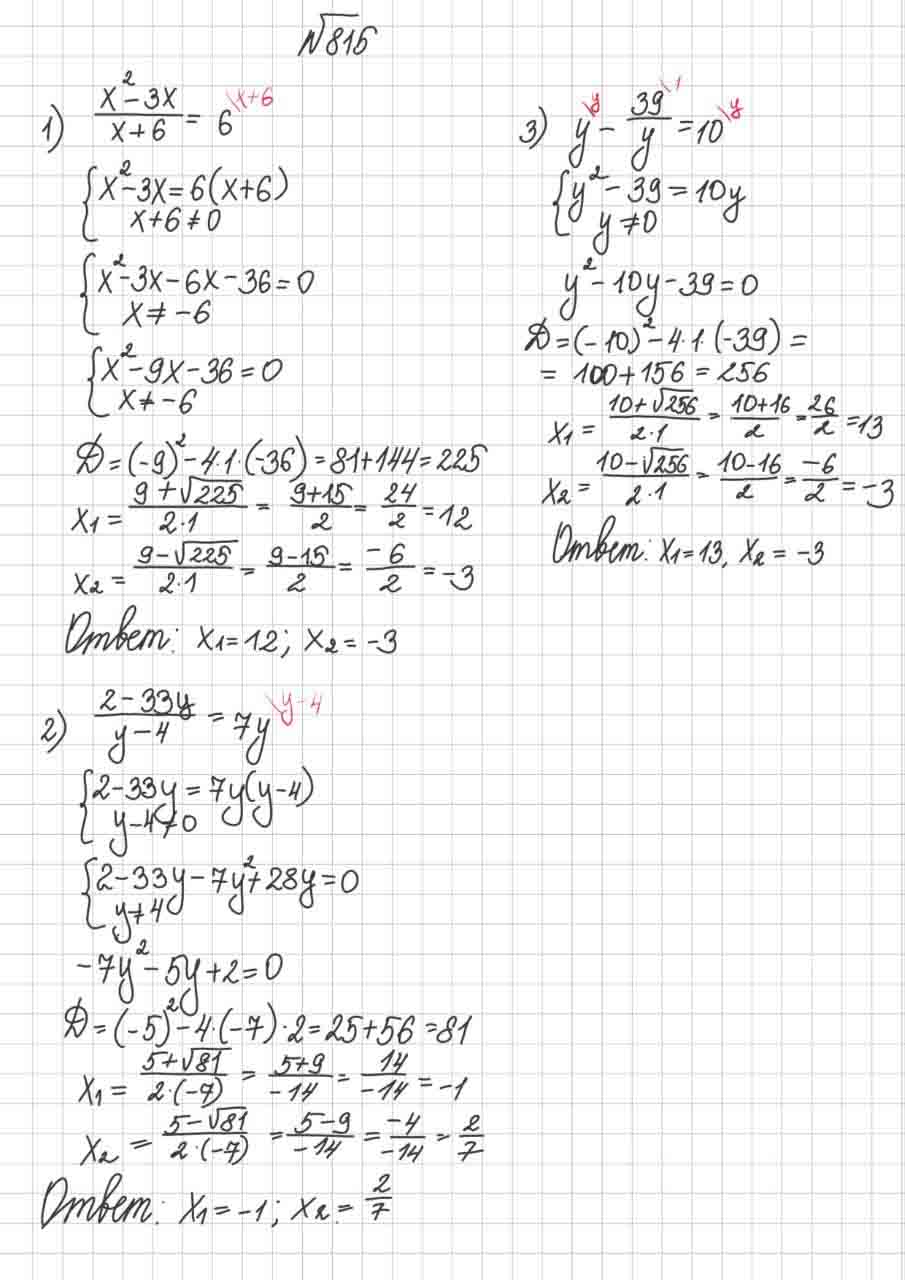 √815
1) (x² - 3x)/(x + 6) = 6 \x+6
{ x² - 3x = 6(x+6)
x + 6 ≠ 0
{ x² - 3x - 6x - 36 = 0
x ≠ -6
{ x² - 9x - 36 = 0
x ≠ -6
D = (-9)² - 4·1·(-36) = 81 + 144 = 225
x1 = (9 + √225)/(2·1) = (9+15)/2 = 24/2 = 12
x2 = (9 - √225)/(2·1) = (9-15)/2 = -6/2 = -3
Ответ: x1 = 12; x2 = -3
2) (2 - 33y)/(y - 4) = 7y \y-4
{ 2 - 33y = 7y(y-4)
y - 4 ≠ 0
{ 2 - 33y - 7y² + 28y = 0
y ≠ 4
-7y² - 5y + 2 = 0
D = (-5)² - 4·(-7)·2 = 25 + 56 = 81
x1 = (5 + √81)/(2·(-7)) = (5+9)/-14 = 14/-14 = -1
x2 = (5 - √81)/(2·(-7)) = (5-9)/-14 = -4/-14 = 2/7
Ответ: x1 = -1; x2 = 2/7
3) y \y - 39/y \1 = 10 \y
{ y² - 39 = 10y
y ≠ 0
y² - 10y - 39 = 0
D = (-10)² - 4·1·(-39) =
= 100 + 156 = 256
x1 = (10 + √256)/(2·1) = (10+16)/2 = 26/2 = 13
x2 = (10 - √256)/(2·1) = (10-16)/2 = -6/2 = -3
Ответ: x1 = 13, x2 = -3